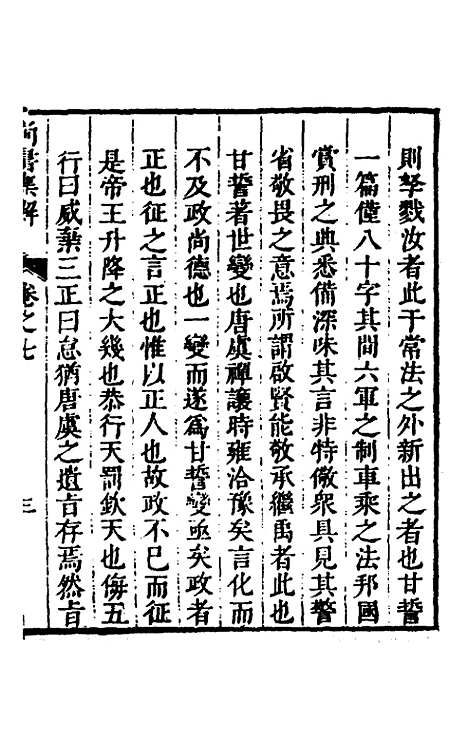 則孥戮汝者此于常法之外新出之者也甘誓
一篇僅八十字其間六軍之制車乘之法邦國
賞刑之典悉備深味其言非特儆衆具見其警
省敬畏之意焉所謂啟賢能敬承繼禹者此也
甘誓著世變也唐虞禪讓時雍洽豫矣言化而
不及政尚德也一變而遂為甘誓變亟矣政者
正也征之言正也惟以正人也故政不已而征
是帝王升降之大幾也恭行天罰欽天也侮五
行曰威棄三正曰怠猶唐虞之遺㫖存焉然㫖
尚書集解 卷之七 三